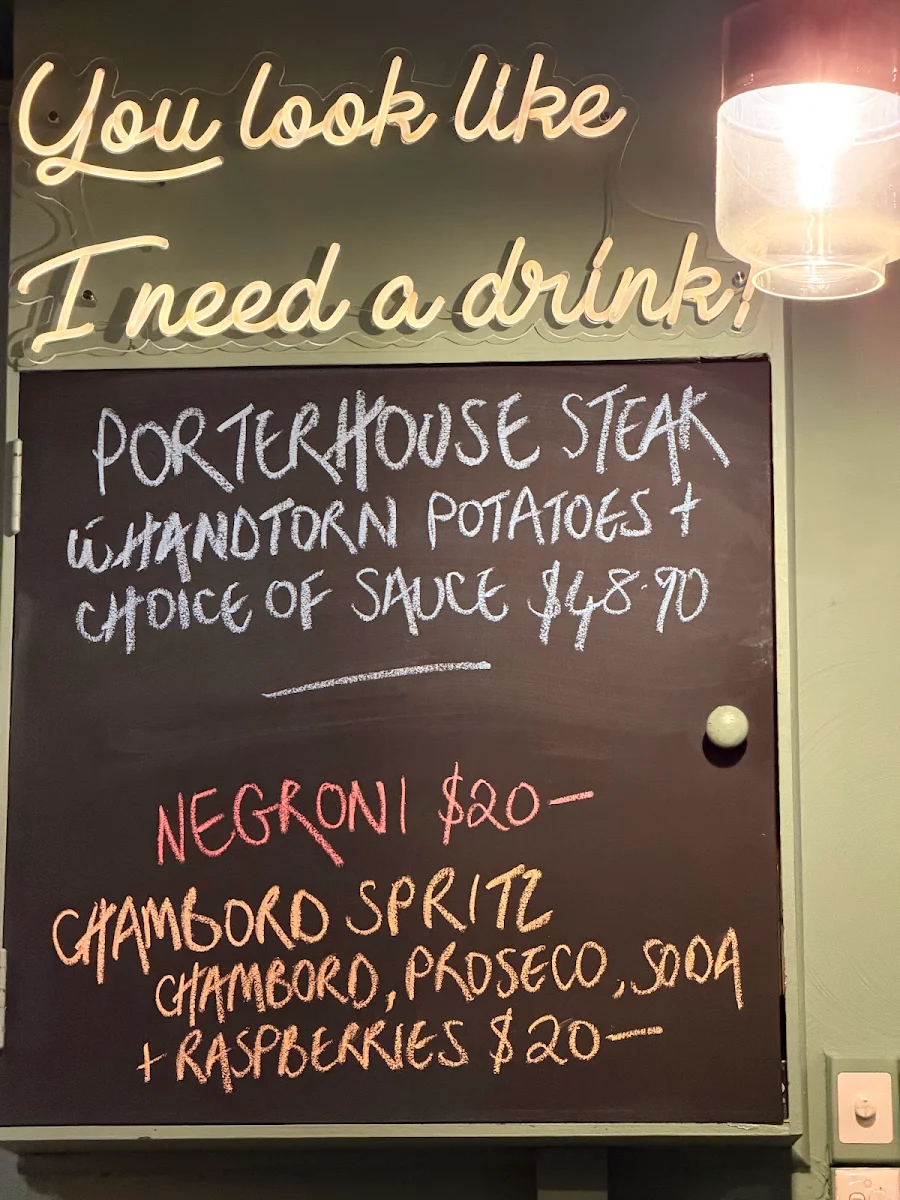 You look like
I need a drink!
PORTERHOUSE STEAK
W HANDTORN POTATOES +
CHOICE OF SAUCE $48.90
NEGRONI $20—
CHAMBORD SPRITZ
CHAMBORD, PROSECO, SODA
+ RASPBERRIES $20—